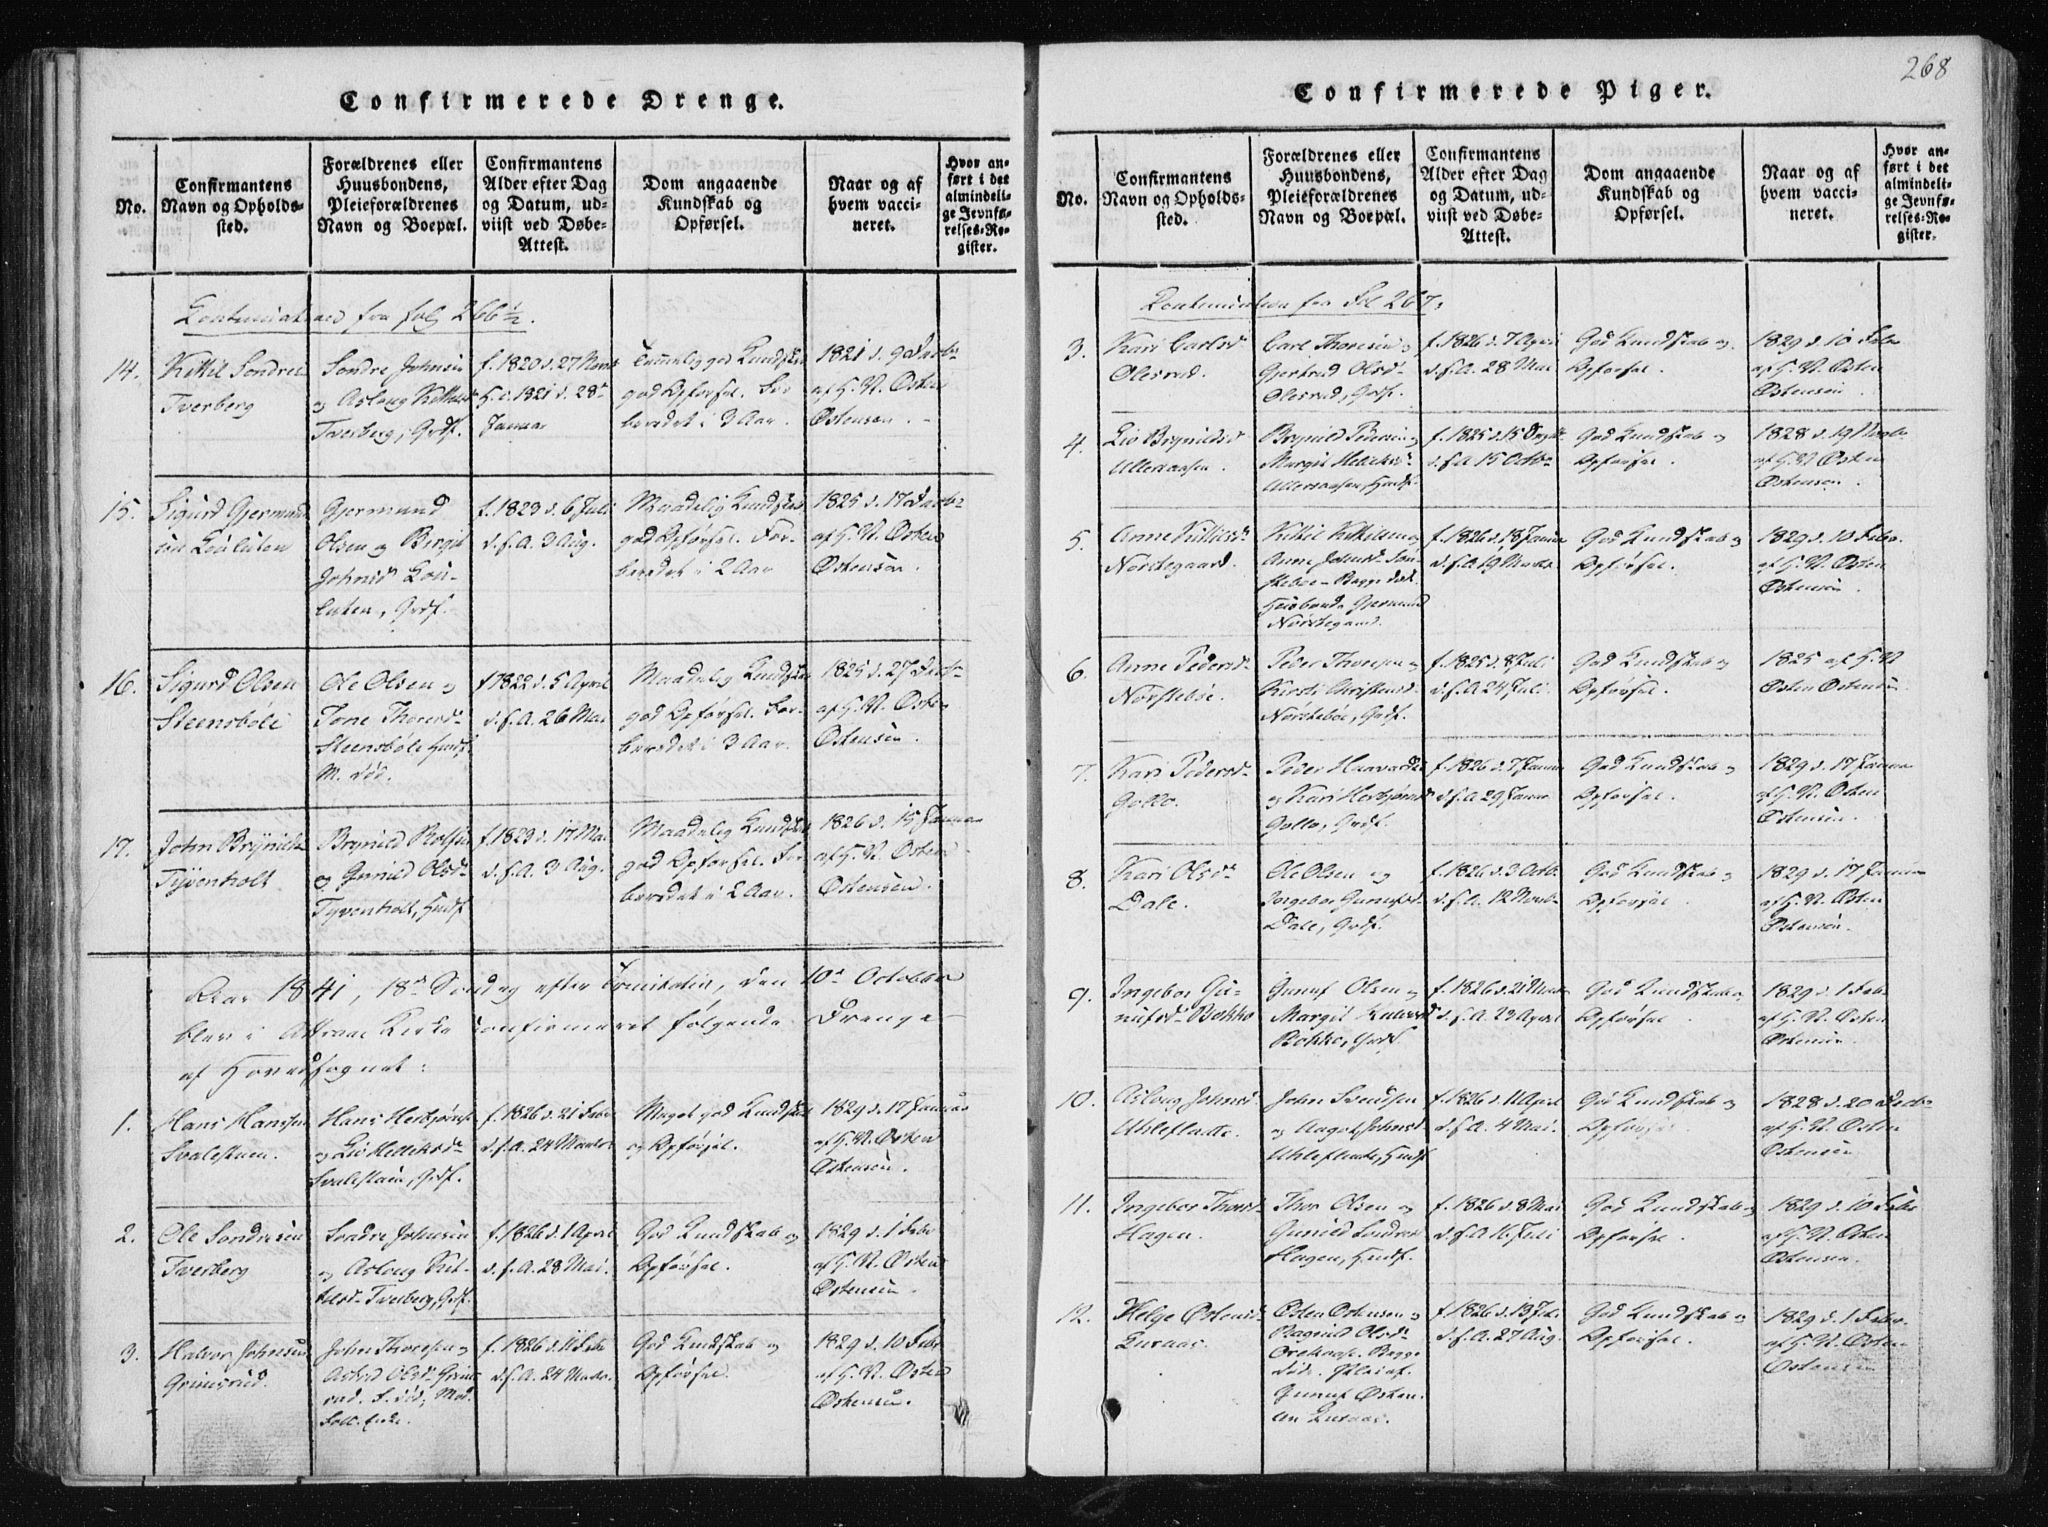 268
Confirmerede Drenge.
No.
Confirmantens
Navn og Opholds-
sted.
Forældrenes eller
Huusbondens,
Pleieforældrenes
Navn og Boepæl.
Confirmantens
Alder efter Dag
og Datum, ud-
viist ved Døbe-
Attest.
Dom angaaende
Kundskab og
Opførsel.
Naar og af
hvem vacci-
neret.
Hvor an-
ført i det
almindeli-
ge Jevnfø-
relses-Re-
gister.
fra fol 266½.
14.
Kittil Sondres
Tverberg
Sondre Johnsen
og Asloug Kittilsd
Tverberg, Grdf.
f. 1820 d. 27
1821 d. 28
Januar
Temmelig god Kundskab
god Opførsel. For
beredet i 3 Aar.
1821 d. 9 Decb
af H. N. Østen
Østensen.
15.
Sigurd Gjermund
sen
Gjermund
Olsen og Birgit
Johnsd
Grdf.
f. 1823 d. 6 Juli
d. s. A. 3 Aug.
Maadelig Kundskab
god Opførsel. For
beredet i 2 Aar
1825 d. 17 Decb
af H. N. Østen
Østensen.
16.
Sigurd Olsen
Steensböle
Ole Olsen og
Tone Thoresd
Steensböle Husf.
M. död.
f 1822 d. 5 April
d. s. A. 26 Mai
Maadelig Kundskab
god Opførsel. For
beredet i 3 Aar.
1825 d. 27 Decb
af H. N. Østen
Østensen.
17.
John Brynilds
Tyvenholt
Brynild Rolfsen
og Gunild Olsd
Tyvenholt, Husf
f. 1823 d. 17 Mai
d. s. A. 3 Aug.
Maadelig Kundskab
god Opførsel. For
beredet i 2 Aar.
1826 d. 15 Januar
af H. N. Østen
Østensen.
Aar 1841, 18de Söndag efter Trinitatis, den 10de October
blev i Attraae Kirke Confirmeret følgende Drenge
af Hovedsognet:
1.
Hans Hansen
Svalestuen.
Hans Herbjørns
og Liv Helliksd
Svalestuen, Grdf.
f. 1826 d. 21 Febr
d. s. A. 24 Marts
Meget god Kundskab
og Opførsel.
1829 d. 17 Januar
af H. N. Østen
Østensen.
2.
Ole Sondresen
Tverberg
Sondre Johnsen
og Aslaug Kit-
tilsd Tverberg, Grdf.
f. 1826 d. 1 April
d. s. A. 28 Mai.
God Kundskab og
Opførsel.
1829 d. 1 Febr
af H. N. Østen
Østensen.
3.
Halvor Johnsen
Grimsrud.
John Thoresen og
Astrid Olsd Grims
rud. F. död, Mod.
f. 1826 d. 11 Febr
d. s. A. 24 Marts.
God Kundskab og
Opførsel
1829 d. 10 Febr
af H. N. Østen
Østensen.
Confirmerede Piger.
No.
Confirmantens
Navn og Opholds-
sted.
Forældrenes eller
Huusbondens,
Pleieforældrenes
Navn og Boepæl.
Confirmantens
Alder efter Dag
og Datum, ud-
viist ved Døbe-
Attest.
Dom angaaende
Kundskab og
Opførsel.
Naar og af
hvem vacci-
neret.
Hvor an-
ført i det
almindeli-
ge Jevnfø-
relses-Re-
gister.
fra Fol 267.
3.
Kari Carlsd
Olesrud.
Carl Thoresen og
Gjertrud Olsd
Olesrud, Grdf.
f. 1826 d. 7 April
d. s. A. 28 Mai
God Kundskab og
Opførsel.
1829 d. 10 Febr
af H. N. Østen
Østensen
4.
Liv Brynildsd
Ulleraasen.
Brynild Pedersen og
Margit Helleksd
Ulleraasen, Husf.
f. 1825 d. 15 Septb
d. s. A 15 Octb
God Kundskab og
Opførsel
1828 d. 19 Novb.
af H. N. Østen
Østensen.
5.
Anne Kittilsd
Norstegaard.
Kittil Kittilsen og
Anne Johnsd
Begge död.
Huusbonde Gjermund
Norstegaard.
f. 1826 d. 18 Januar
d. s. A. 19 Marts.
God Kundskab og
Opførsel.
1829 d. 10 Febr.
af H. N. Østen
Østensen.
6.
Anne Pedersd
Norsteböe.
Peder Thoresen og
Kirsti Christensd
Norsteböe, Grdf.
f. 1825 d. 8 Juli
d. s. A 24 Juli.
God Kundskab og
Opførsel.
1825 af H. N
Østen Østensen.
7.
Kari Pedersd
Gollo.
Peder Haavards
og Kari Herbjørnsd
Gollo, Grdf.
f. 1826 d. 7 Januar
d. s. A 29 Januar
God Kundskab og
Opførsel.
1829 d. 17 Januar
af H. N. Østen
Østensen.
8.
Kari Olsd
Dale.
Ole Olsen og
Ingebor Gunufsd
Dale, Grdf.
f. 1826 d. 3 Octb.
d. s. A. 12 Novb
God Kundskab og
Opførsel.
1829 d. 17 Januar
af H. N. Østen
Østensen.
9.
Ingebor Gu-
nufsd Bokko
Gunuf Olsen og
Margit
Bokko, Grdf.
f. 1826 d. 21 Marts
d. s. A. 23 April
God Kundskab og
Opførsel.
1829 d. 1 Feb
af H. N. Østen
Østensen
10.
Aslaug Johnsd
Uhleflatte.
John Svendsen
og Aagot Johnsd
Uhleflatte, Husf
f. 1826 d. 11 April
d. s. A. 4 Mai.
God Kundskab og
Opførsel.
1828 d. 20 Decb
af H. N. Østen
Østensen
11.
Ingebor Thorsd
Hagen.
Thor Olsen og
Gunild Sondresd
Hagen, Husf.
f. 1826 d. 8 Mai
d. s. A. 16 Juli
God Kundskab og
Opførsel
1829 d. 10 Febr
af H. N. Østen
Østensen.
12.
Helge Østensd
Luraas.
Østen Østensen og
Ragnild Olsd
Begge
död. Pleief.
Gunuf Østen-
sen Luraas.
f. 1826 d. 13 Juli.
d. s. A. 27 Aug.
God Kundskab og
Opførsel.
1829 d. 1 Febr.
af H. N. Østen
Østensen